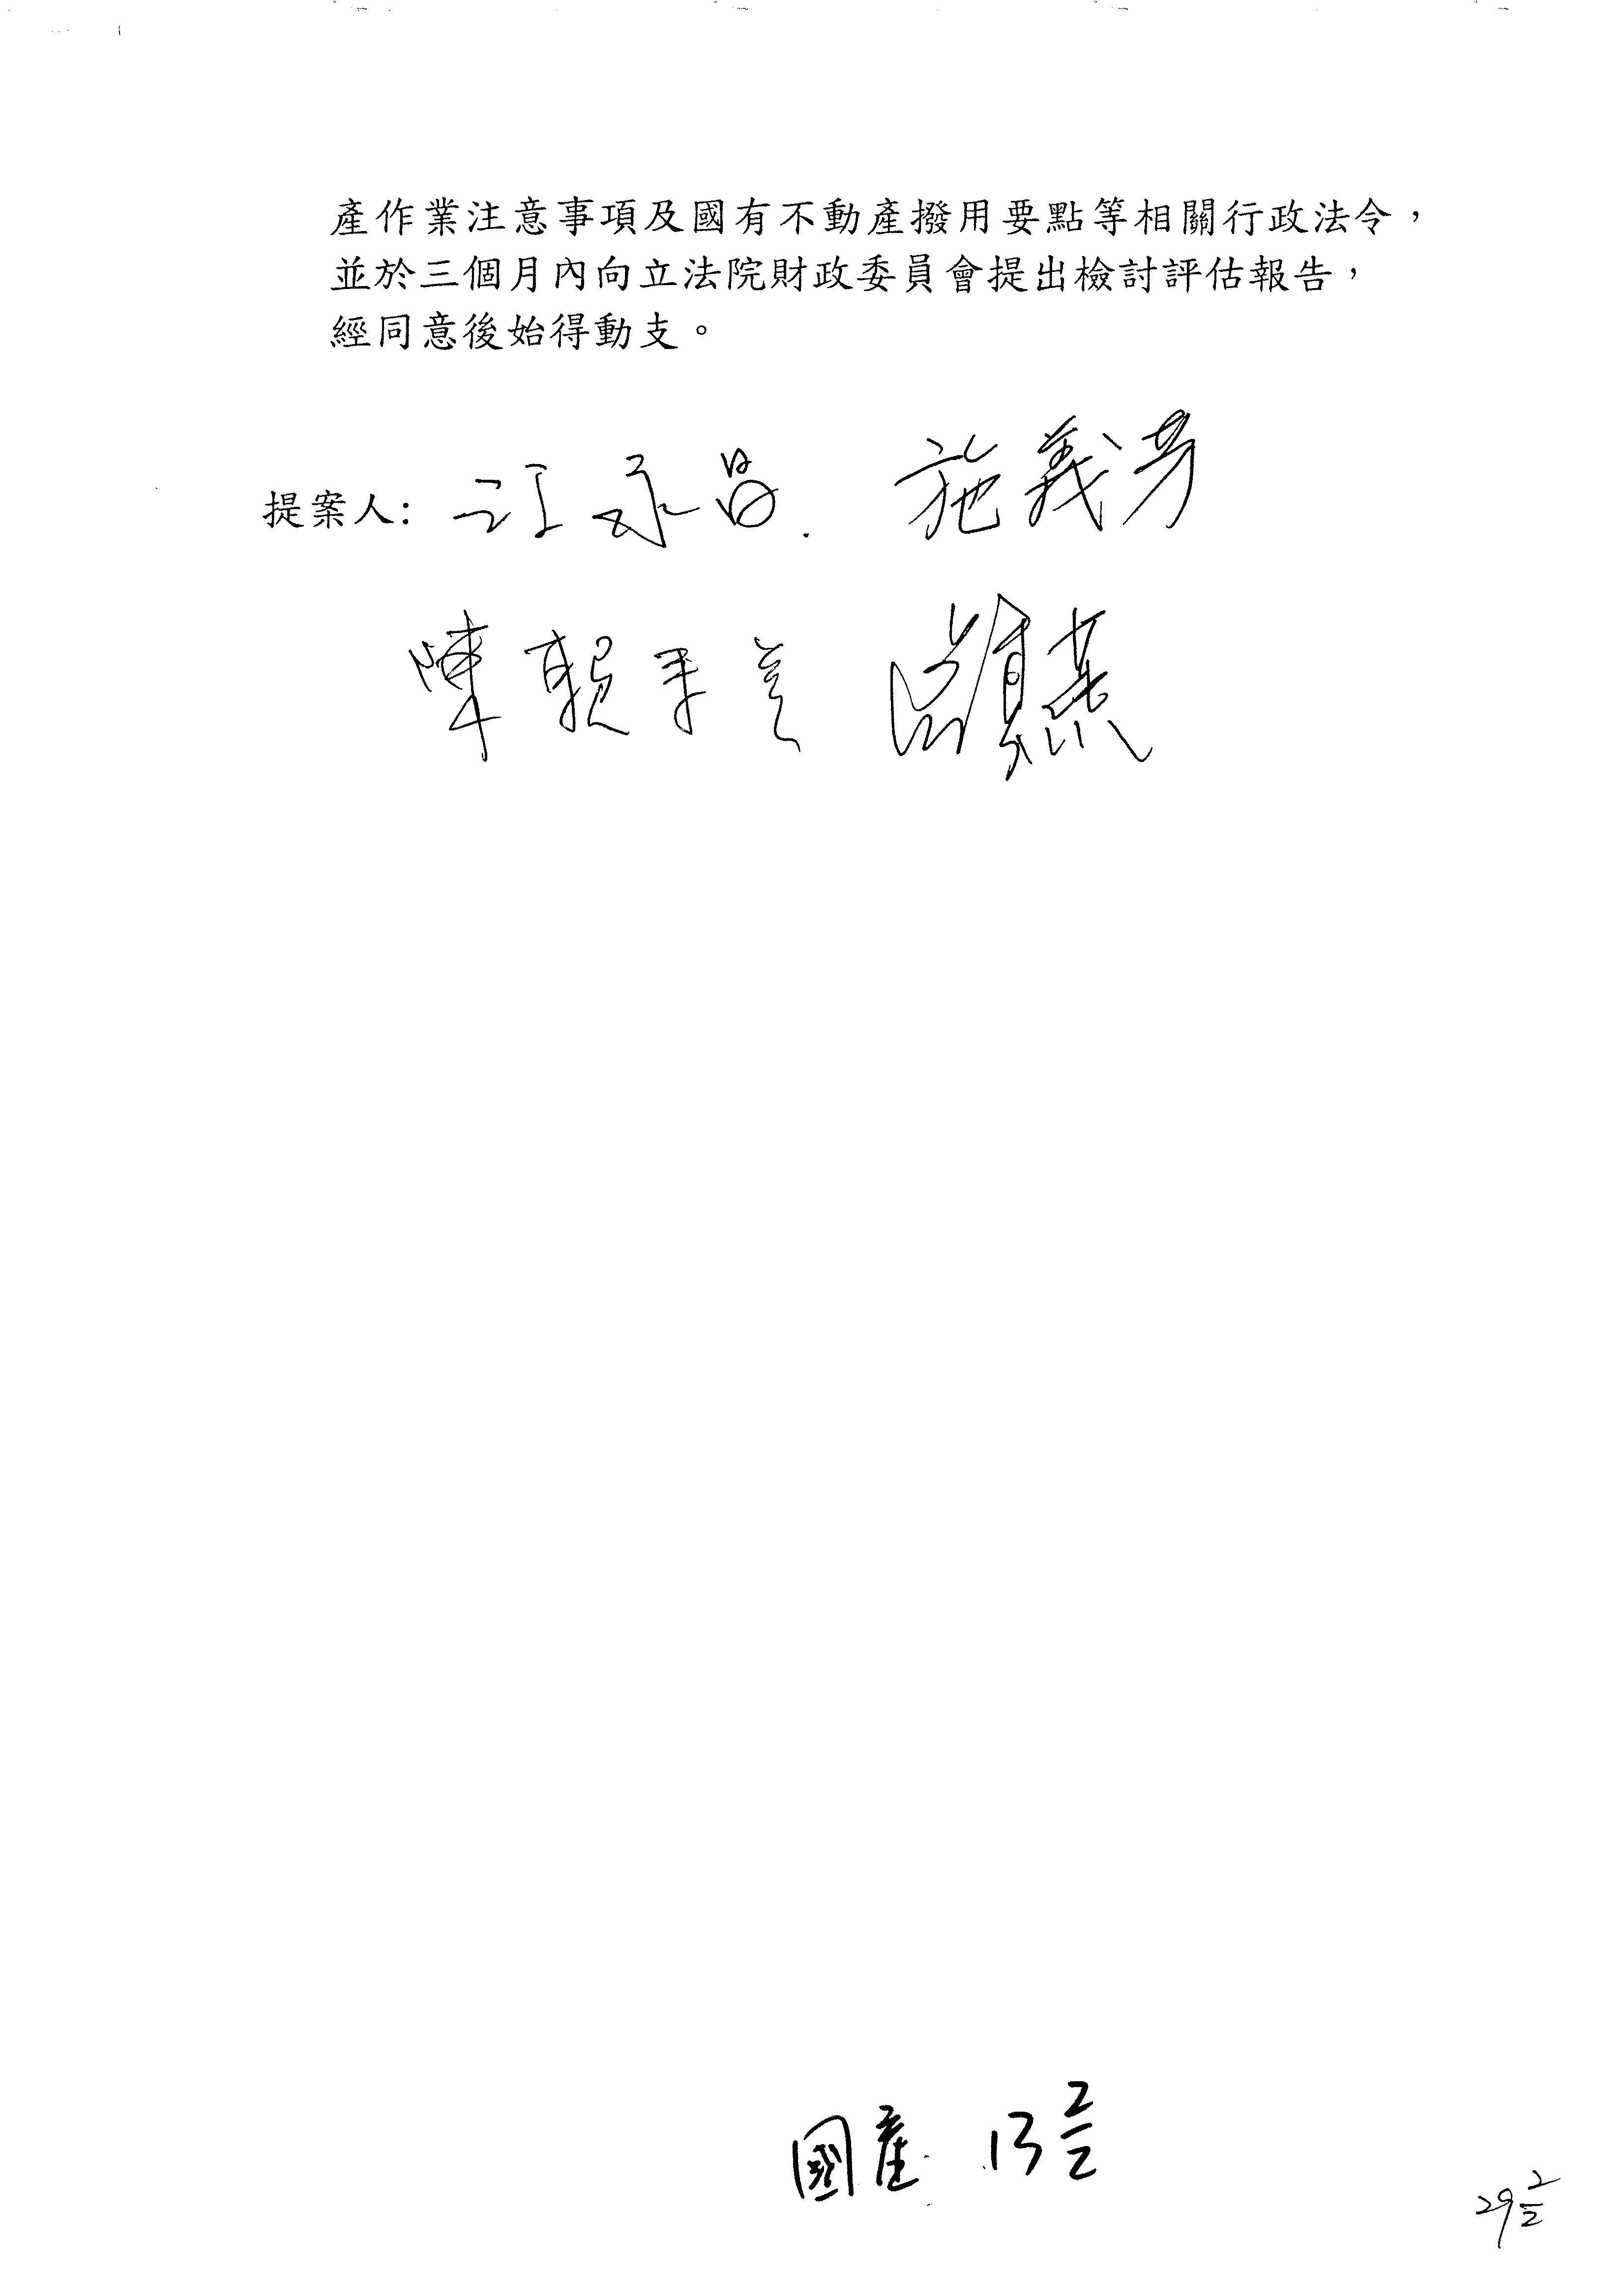 產作業注意事項及國有不動產撥用要點等相關行政法令，
並於三個月內向立法院財政委員會提出檢討評估報告，
經同意後始得動支。
提案人： 江永昌 施義芳
陳賴素美
國產 13 2/2
29 2/2